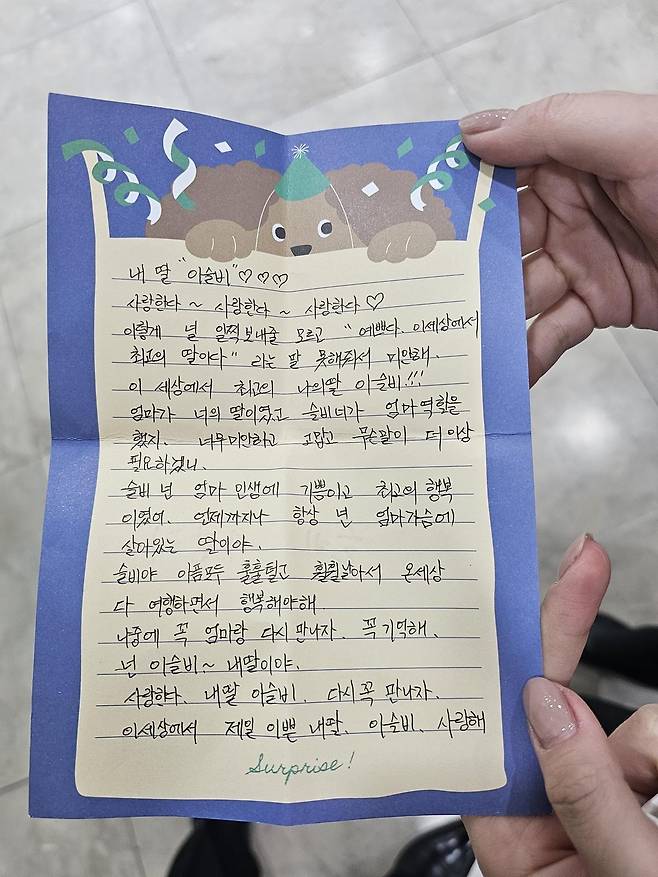 내 딸 "이슬비"♡♡♡
사랑한다~ 사랑한다~ 사랑한다♡
이렇게 널 일찍보내줄 모르고 "예쁘다. 이세상에서
최고의 딸이다" 라는 말 못해줘서 미안해.
이 세상에서 최고의 나의딸 이슬비!!!
엄마가 너의 딸이였고 슬비너가 엄마역할을
했지. 너무미안하고 고맙고 무슨말이 더이상
필요하겠니.
슬비 넌 엄마 인생에 기쁨이고 최고의 행복
이였어. 언제까지나 항상 넌 엄마가슴에
살아있는 딸이야.
슬비야 아픔모두 훌훌털고 훨훨날아서 온세상
다 여행하면서 행복해야해
나중에 꼭 엄마랑 다시만나자. 꼭기억해.
넌 이슬비~ 내딸이야.
사랑한다. 내딸 이슬비. 다시꼭 만나자.
이세상에서 제일 이쁜 내딸. 이슬비. 사랑해
Surprise!